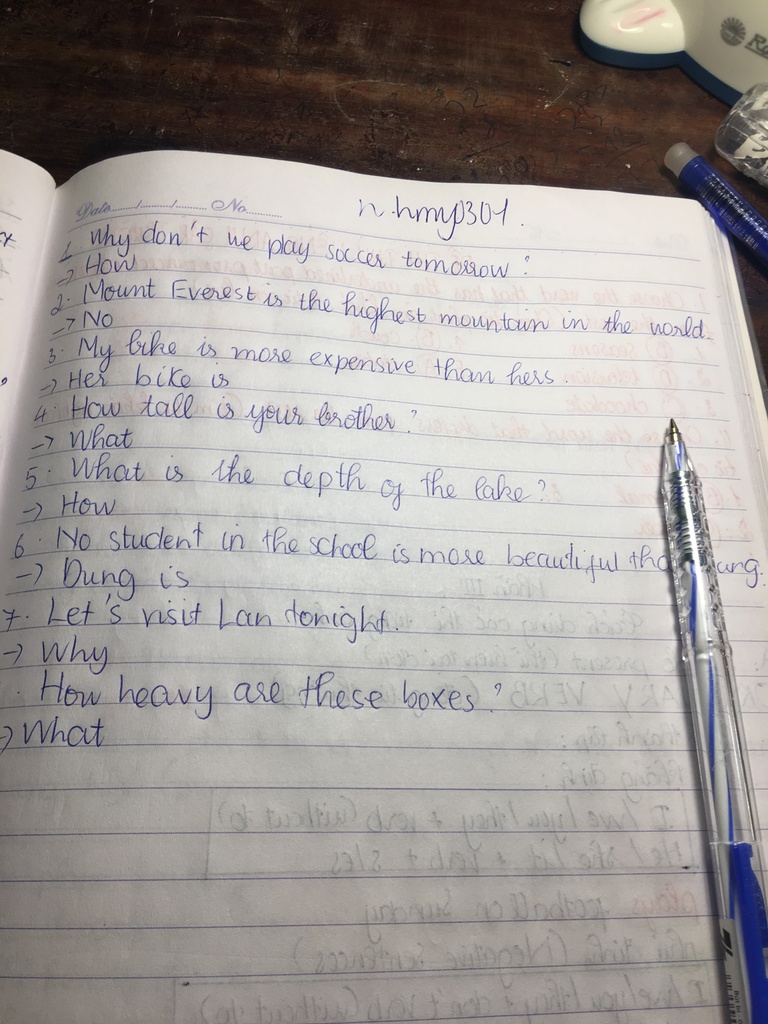 Date......./......./........ No............
n.hmyp301.
1. Why don't we play soccer tomorrow?
-> How
2. Mount Everest is the highest mountain in the world.
-> No
3. My bike is more expensive than hers.
-> Her bike is
4. How tall is your brother?
-> What
5. What is the depth of the lake?
-> How
6. No student in the school is more beautiful ung.
-> Dung is
7. Let's visit Lan tonight.
-> Why
. How heavy are these boxes?
-> What